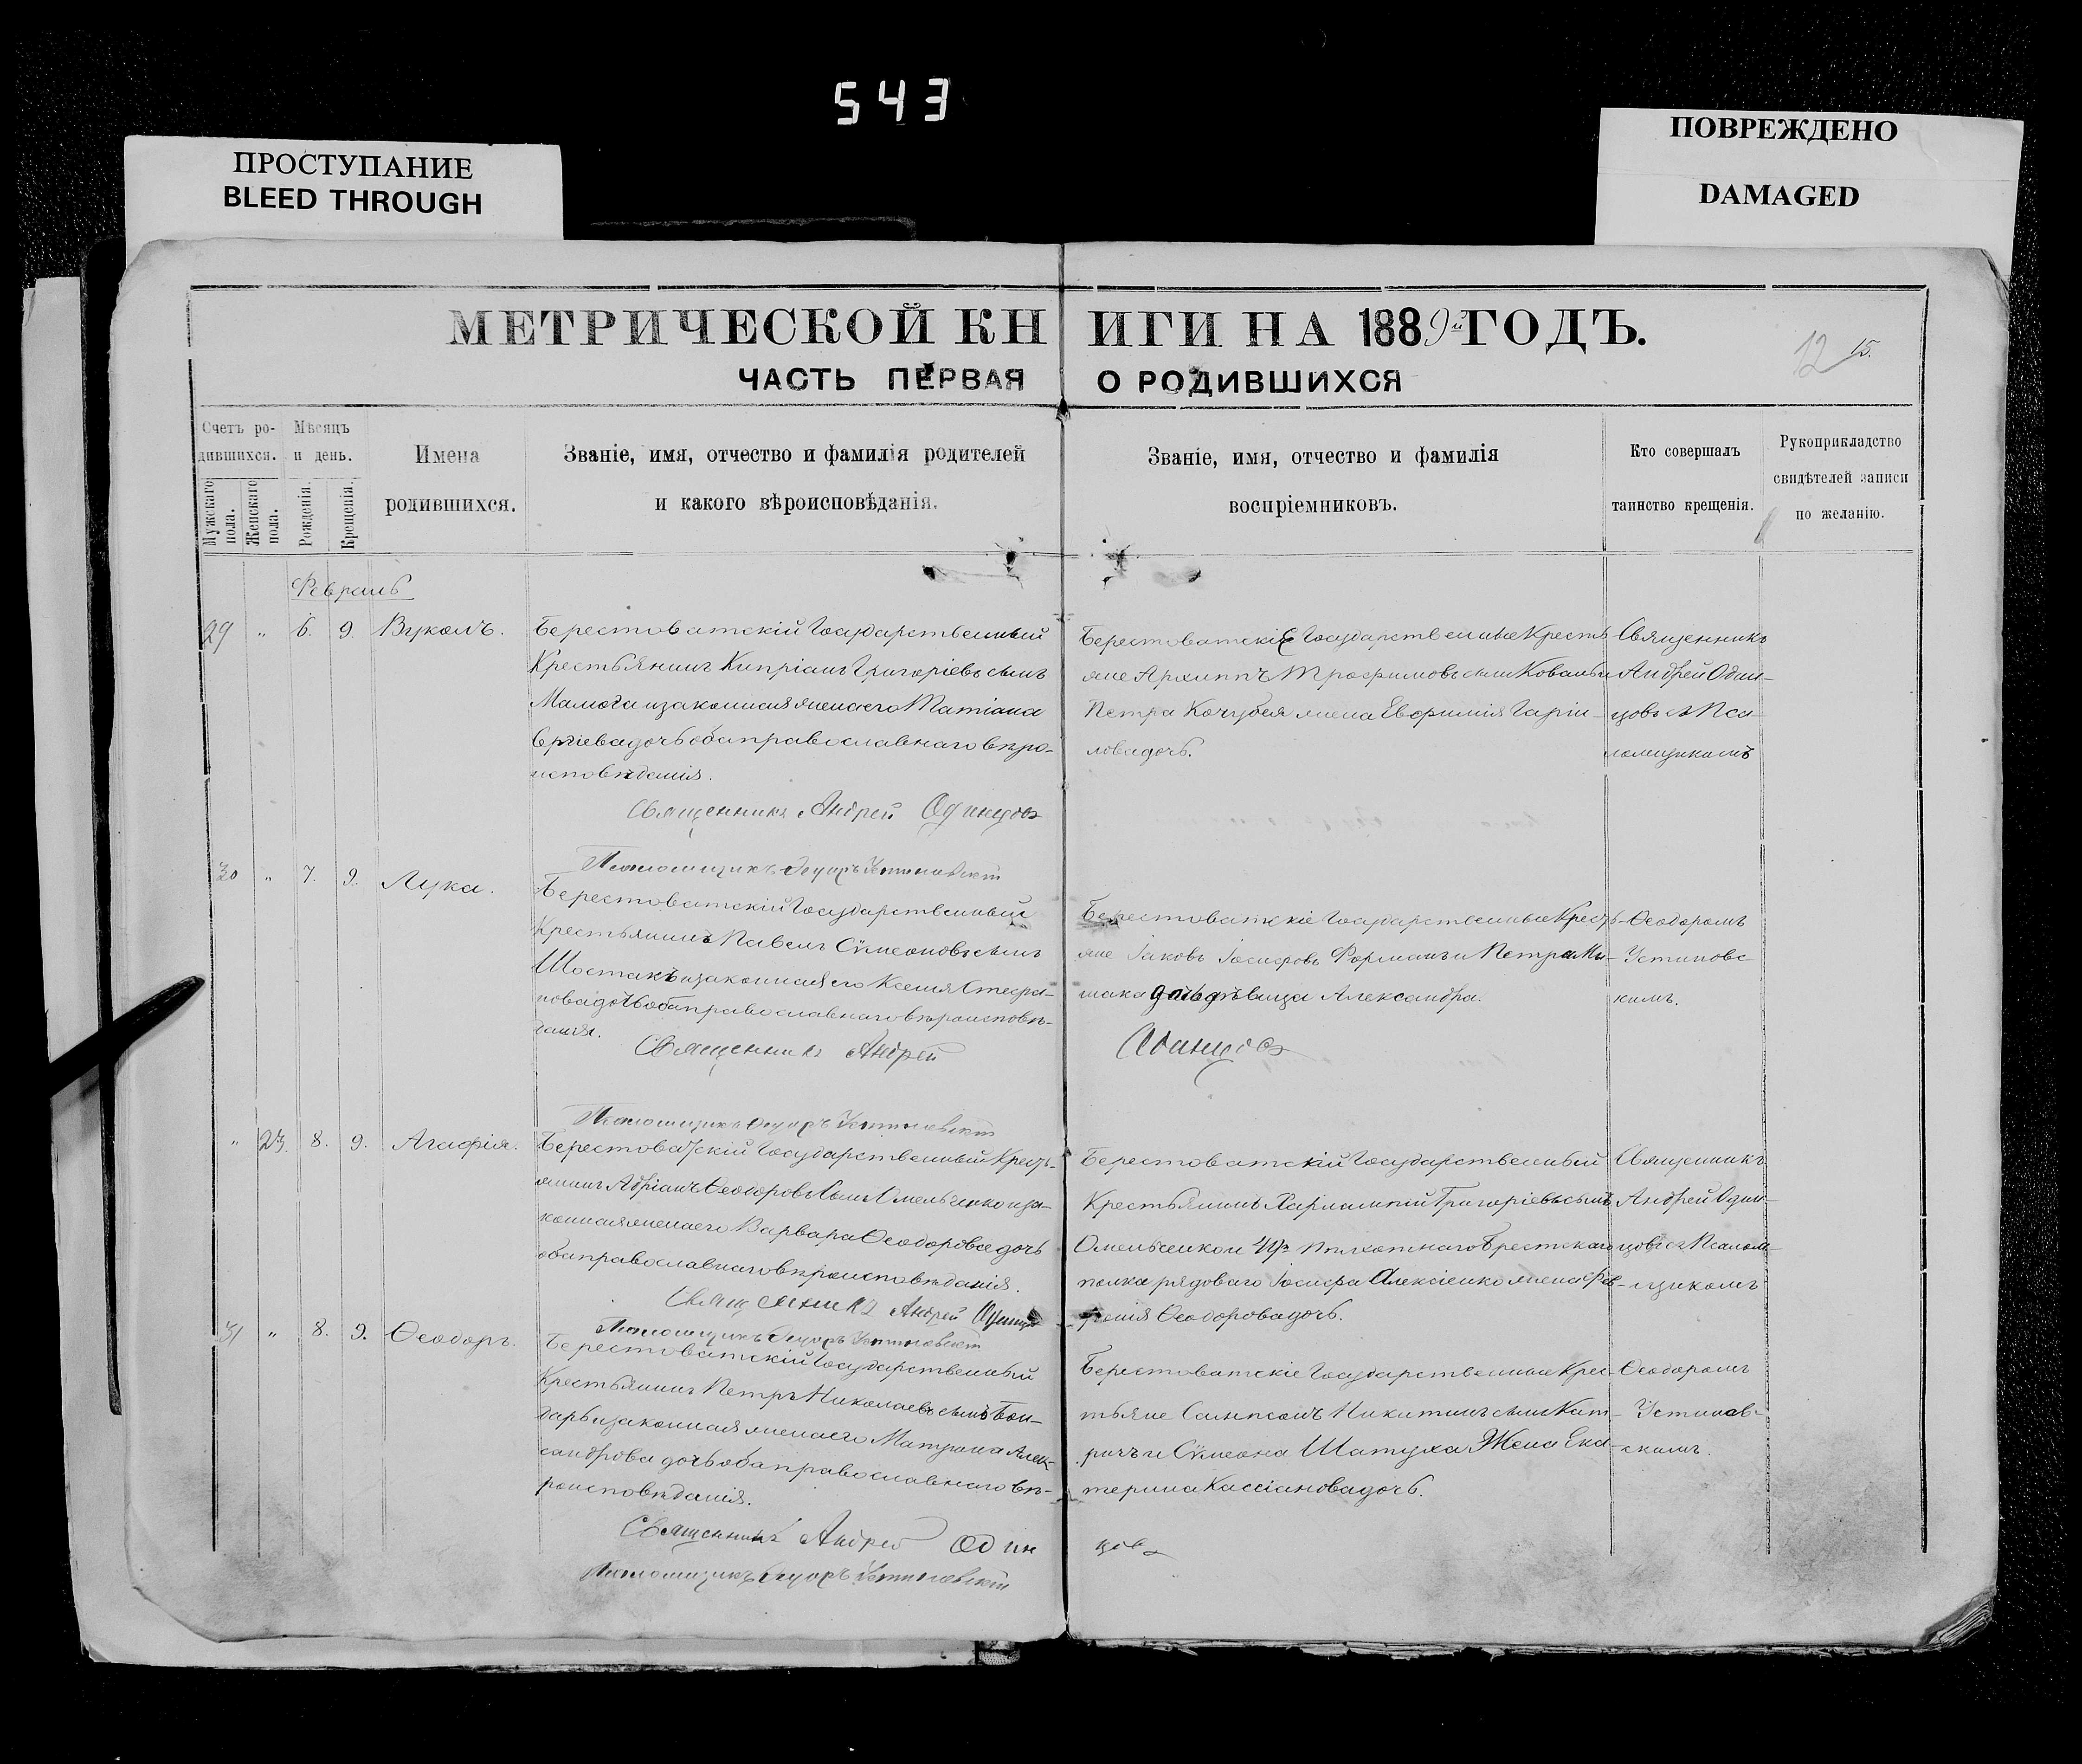 543
ПРОСТУПАНИЕ
BLEED THROUGH
ПОВРЕЖДЕНО
DAMAGED
МЕТРИЧЕСКОЙ КНИГИ НА 1889й ГОДЪ.
12 15.
ЧАСТЬ ПЕРВАЯ О РОДИВШИХСЯ
Счетъ ро-
дившихся.
Мужскаго пола.
Женскаго пола.
Мѣсяцъ
и день.
Рожденія.
Крещенія.
Имена
родившихся.
Званіе, имя, отчество и фамилія родителей
и какого вѣроисповѣданія.
Званіе, имя, отчество и фамилія
воспріемниковъ.
Кто совершалъ
таинство крещенія.
Рукоприкладство
свидѣтелей записи
по желанію.
Февраль
29 " 6. 9. Вуколъ.
Берестоватскій Государственный
Крестьянинъ Кипріанъ Григоріевъ сынъ
и законная жена его Татіана
дочь оба православнаго вѣро-
исповѣданія.
Священникъ Андрей Одинцовъ
Псаломщикъ Ѳеодоръ Устиновскій
Берестоватскіе Государственные Кресть
яне Архиппъ Трофимовъ сынъ Коваль и
Петра Кочубея жена Евфимія
лова дочь.
Священникъ
Андрей Один-
цовъ съ Пса-
ломщикомъ
30 " 7. 9. Лука.
Берестоватскій Государственный
Крестьянинъ Павелъ Сѵмеоновъ сынъ
Шостакъ и законная его Ксенія Стефа-
нова дочь оба православнаго вѣроисповѣ-
данія.
Священникъ Андрей Одинцовъ
Псаломщикъ Ѳеодоръ Устиновскій
Берестоватскіе Государственные Кресть-
яне Іаковъ Іосифовъ Форманъ и Петра Ми-
шака дочь дѣвица Александра.
Ѳеодоромъ
Устиновс
кимъ.
" 23. 8. 9. Агафія.
Берестоватскій Государственный Кресть-
янинъ Адріанъ Ѳеодоровъ сынъ Омельченко и за-
конная жена его Варвара Ѳеодорова дочь
оба православнаго вѣроисповѣданія.
Священникъ Андрей Одинцовъ
Псаломщикъ Ѳеодоръ Устиновскій
Берестоватскій Государственный
Крестьянинъ Харлампій Григоріевъ сынъ
Омельченко и Пѣхотнаго Брестскаго
полка рядоваго Іосифа Алексіенко жена Ев-
Ѳеодорова дочь.
Священникъ
Андрей Один-
цовъ съ Псалом-
щикомъ
31 " 8. 9. Ѳеодоръ.
Берестоватскій Государственный
Крестьянинъ Петръ Николаевъ сынъ Бон-
дарь и законная жена его Матрона Алек-
сандрова дочь оба православнаго вѣ-
роисповѣданія.
Священникъ Андрей Одинцовъ
Псаломщикъ Ѳеодоръ Устиновскій
Берестоватскіе Государственные Крес-
тьяне Сампсонъ Никитинъ сынъ Кат-
ричъ и Сѵмеона Шатуха Жена Ека-
терина Кассіанова дочь.
Ѳеодоромъ
Устинов-
скимъ.